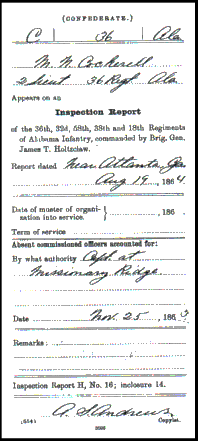 (CONFEDERATE.)
C | 36 | Ala
M. N. Cockerell
2 Lieut 36 Regt. Ala
Appears on an
Inspection Report
of the 36th, 32d, 58th, 38th and 18th Regiments
of Alabama Infantry, commanded by Brig. Gen.
James T. Holtzclaw.
Report dated Near Atlanta Ga
Aug 19, 1864
Date of muster of organi-
zation into service. , 186
Term of service
Absent commissioned officers accounted for:
By what authority Capt. at
Missionary Ridge
Date Nov. 25, 1863
Remarks:
Inspection Report H, No. 16; inclosure 14.
A. S. Andrews
(654) Copyist.